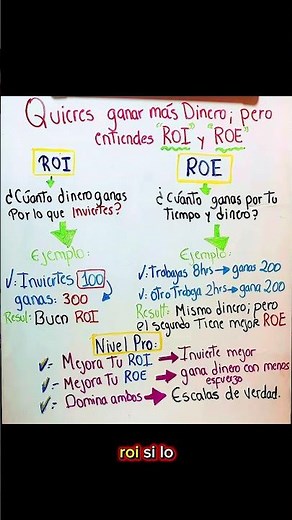 Quieres ganar más Dinero; pero
entiendes "ROI" y "ROE"
ROI
¿Cuánto dinero ganas
Por lo que Inviertes?
Ejemplo:
√: Inviertes 100
ganas: 300
Resul: Buen ROI
ROE
¿Cuánto ganas por tu
tiempo y dinero?
Ejemplo:
√: Trabajas 8hrs → ganas 200
√: otro Trabaja 2hrs → gana 200
Result: Mismo dinero; pero
el segundo Tiene mejor ROE
Nivel Pro:
√= Mejora Tu ROI → Invierte mejor
√= Mejora Tu ROE → gana dinero con menos
esfuerzo
√= Domina ambos → Escalas de verdad.
roi si lo